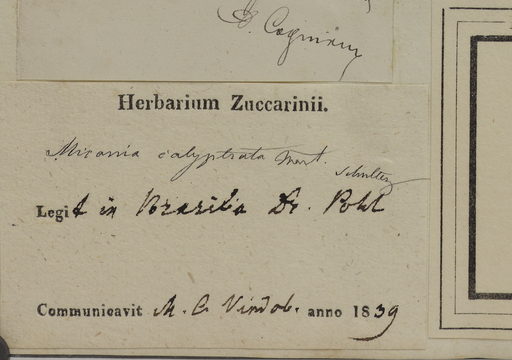 A. Cogniaux
Herbarium Zuccarinii.
Miconia calyptrata Mart.
Schultes
Legit in Brasilia Dr. Pohl
Communicavit M. C. Vindob. anno 1839